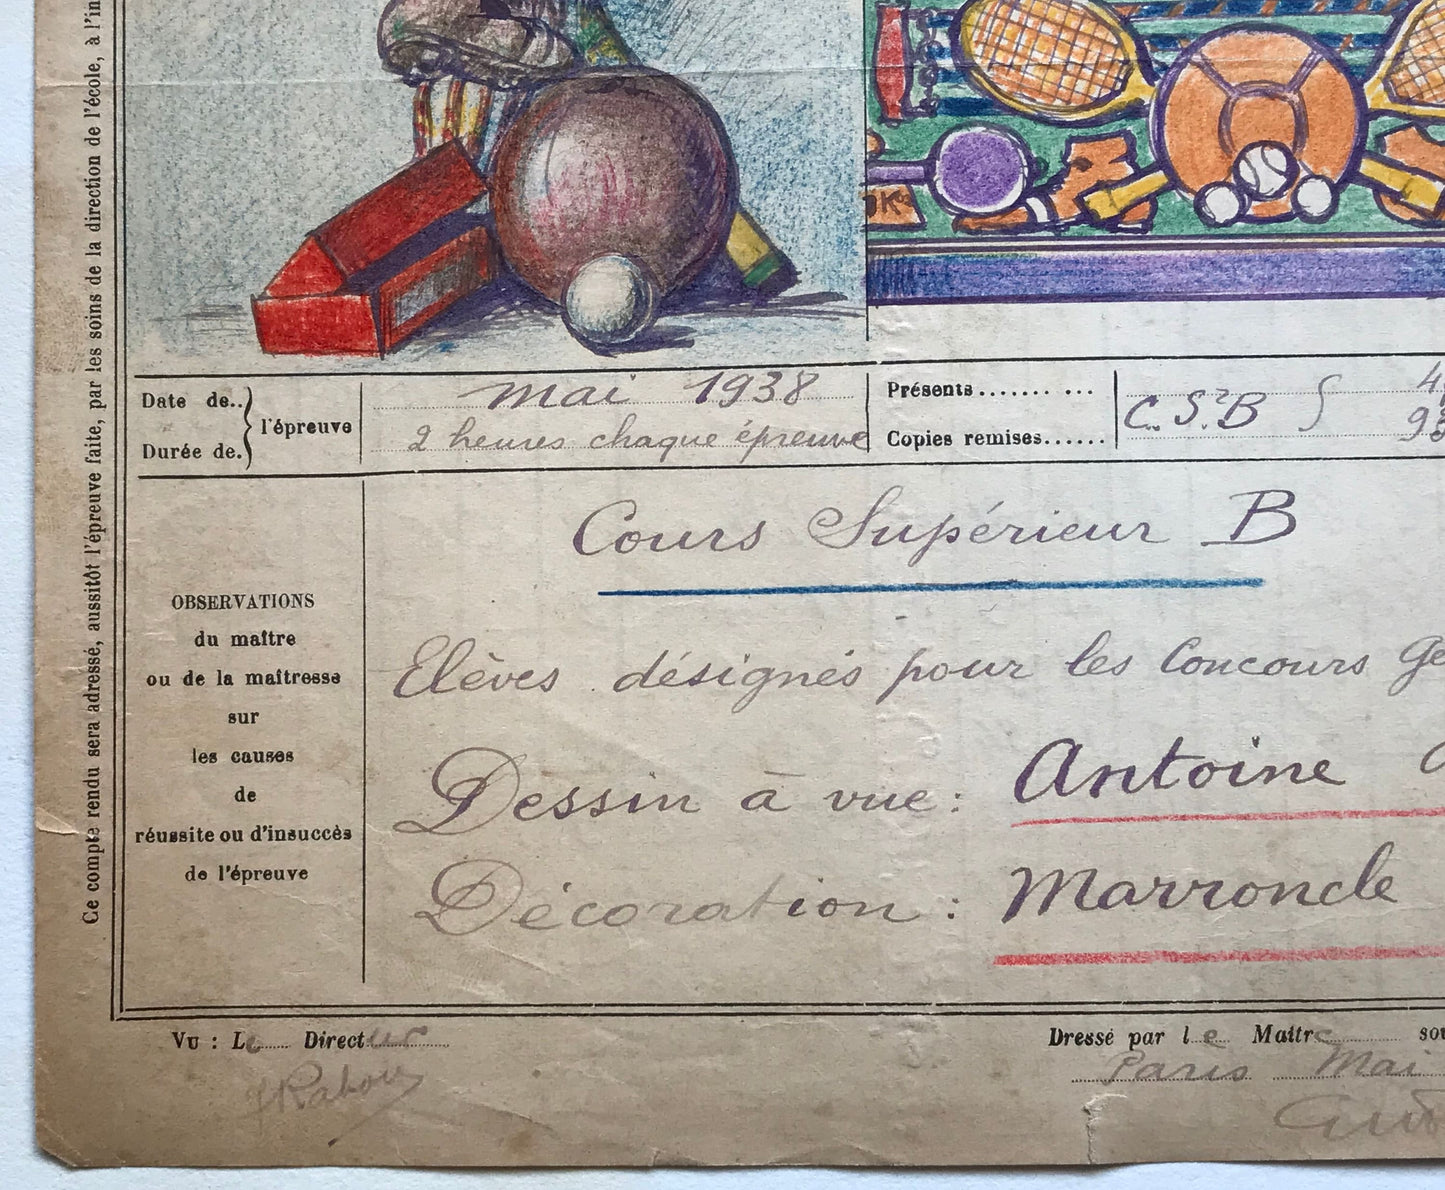 Ce compte rendu sera adressé, aussitôt l'épreuve faite, par les soins de la direction de l'école, à l'in
Date de..
Durée de.
l'épreuve
mai 1938
2 heures chaque épreuve
Présents....... ...
Copies remises......
C. S.? B
Cours Supérieur B
OBSERVATIONS
du maître
ou de la maîtresse
sur
les causes
de
réussite ou d'insuccès
de l'épreuve
Elèves désignés pour les Concours Gé
Dessin à vue: Antoine
Décoration : Marroncle
Vu : Le Directeur
Dressé par le Maître sou
Paris Mai